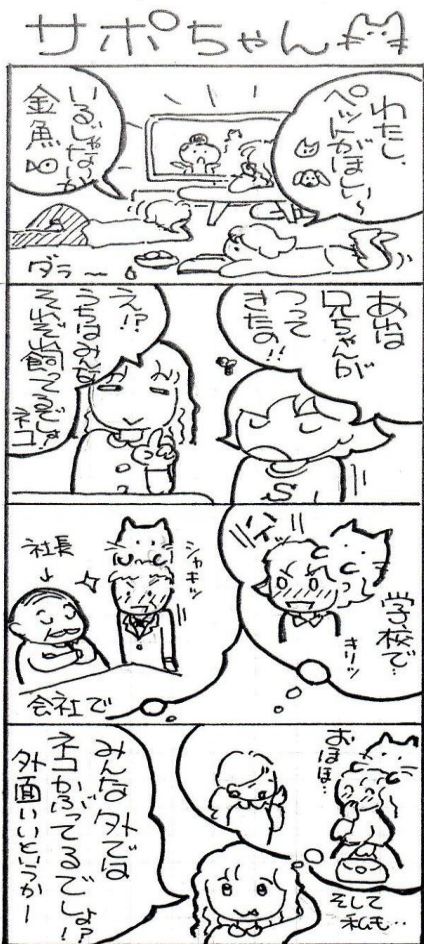 サポちゃん
わたし、
ペットがほしい〜
いるじゃないか
金魚
ダラ〜
あれは
兄ちゃんが
つって
きたの!!
え!?
うちはみんな
それぞれ飼ってるでしょ?
ネコ
S
学校で…
キリッ
シャキッ
社長
会社で
おほほ…
そして
私も…
みんな外では
ネコかぶってるでしょ!?
外面いいというかー